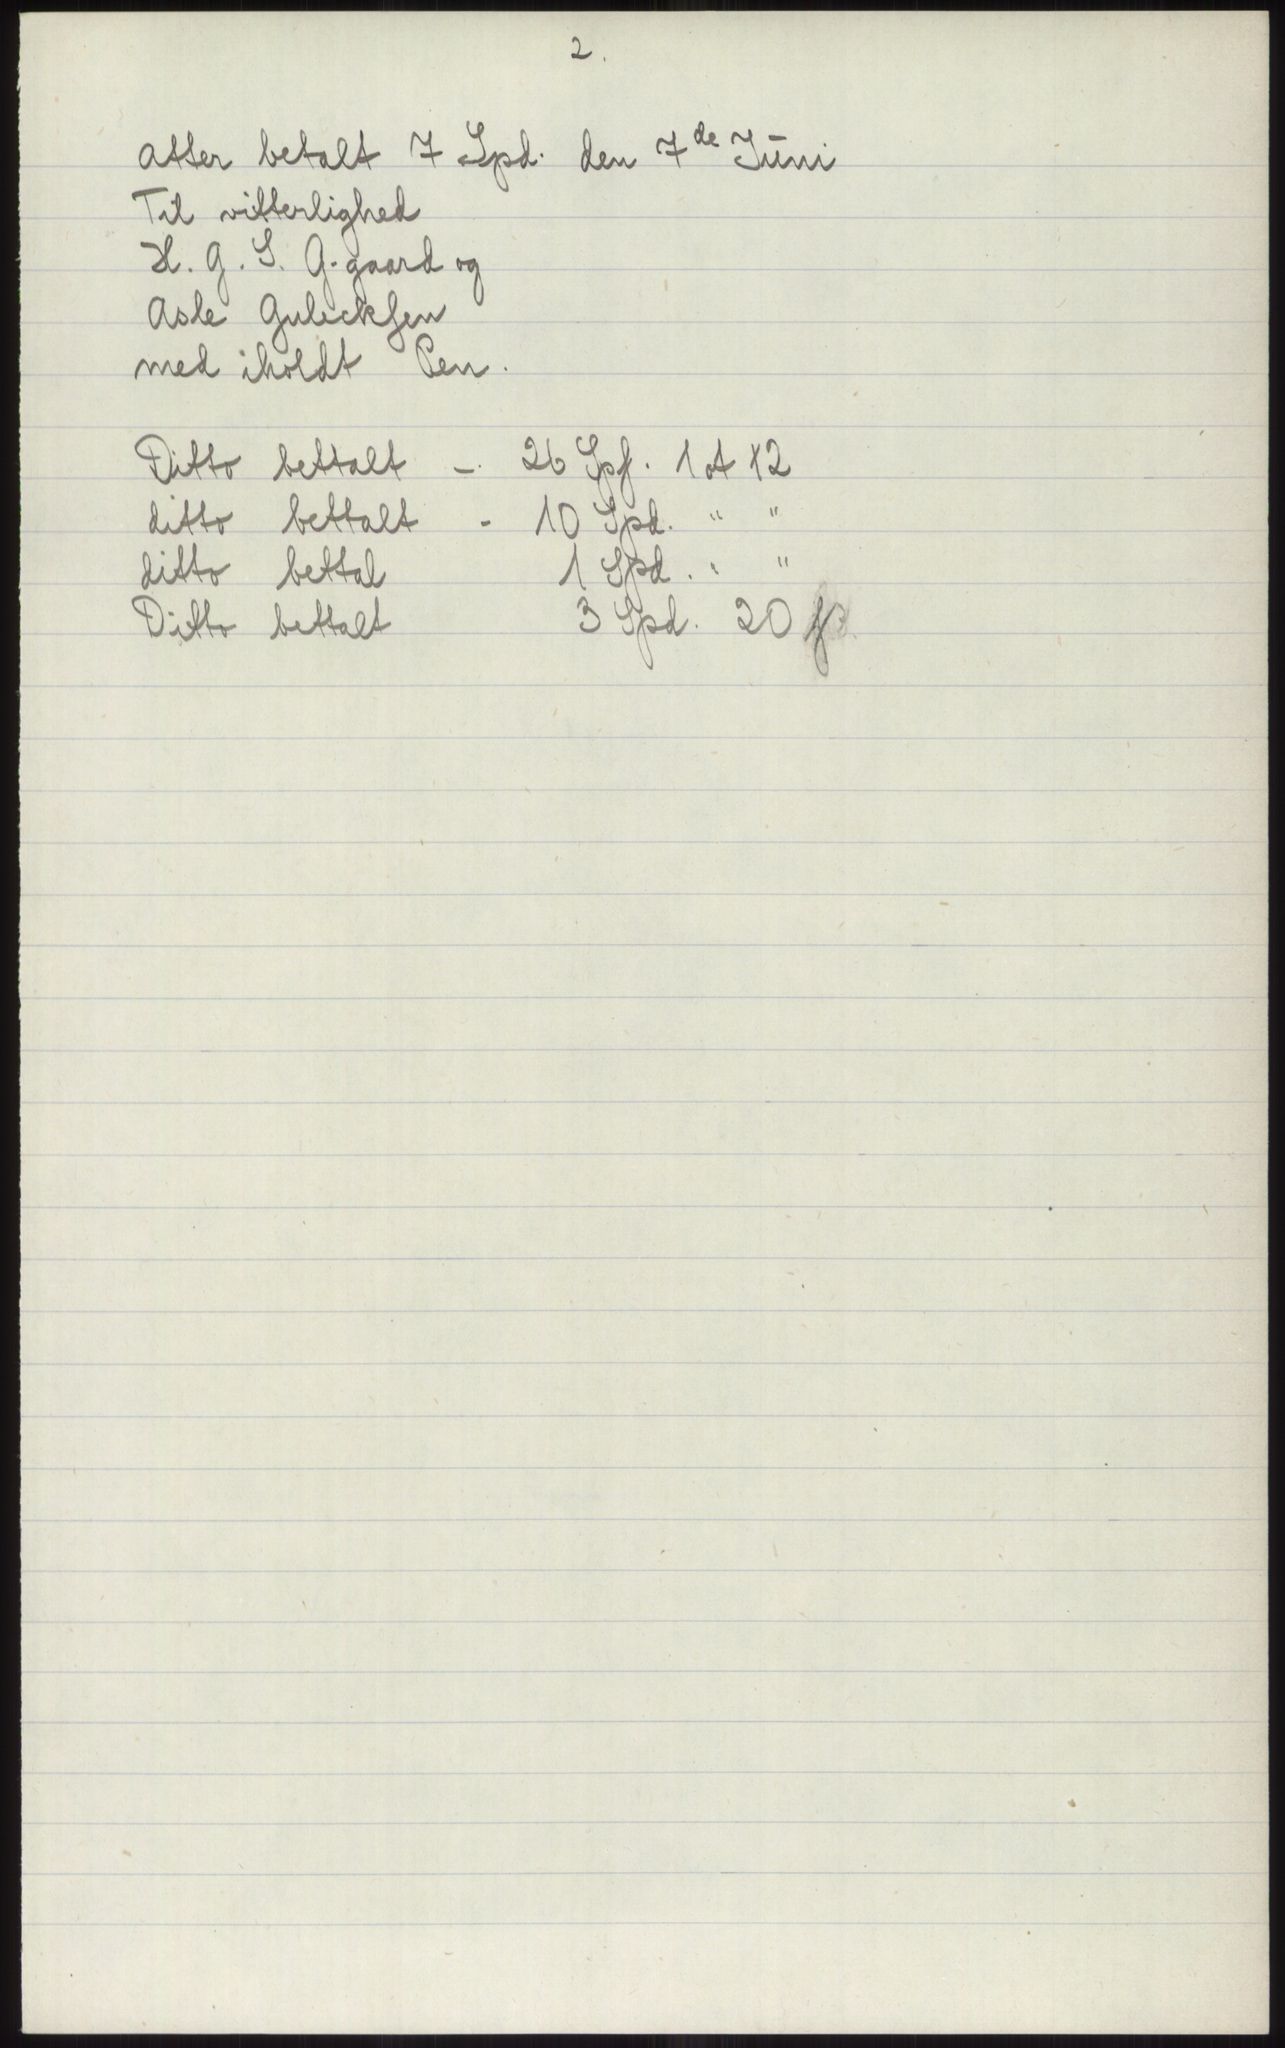 2.
atter betalt 7 Spd. den 7de Juni
Til vitterlighed
H. G. S. G.gaard og
Asle Gulecksen
med iholdt Pen.
Ditto bettalt - 26 Spf. 1 ot 12
ditto bettalt - 10 Spd. " "
ditto bettal 1 Spd. " "
Ditto bettalt 3 Spd. 20